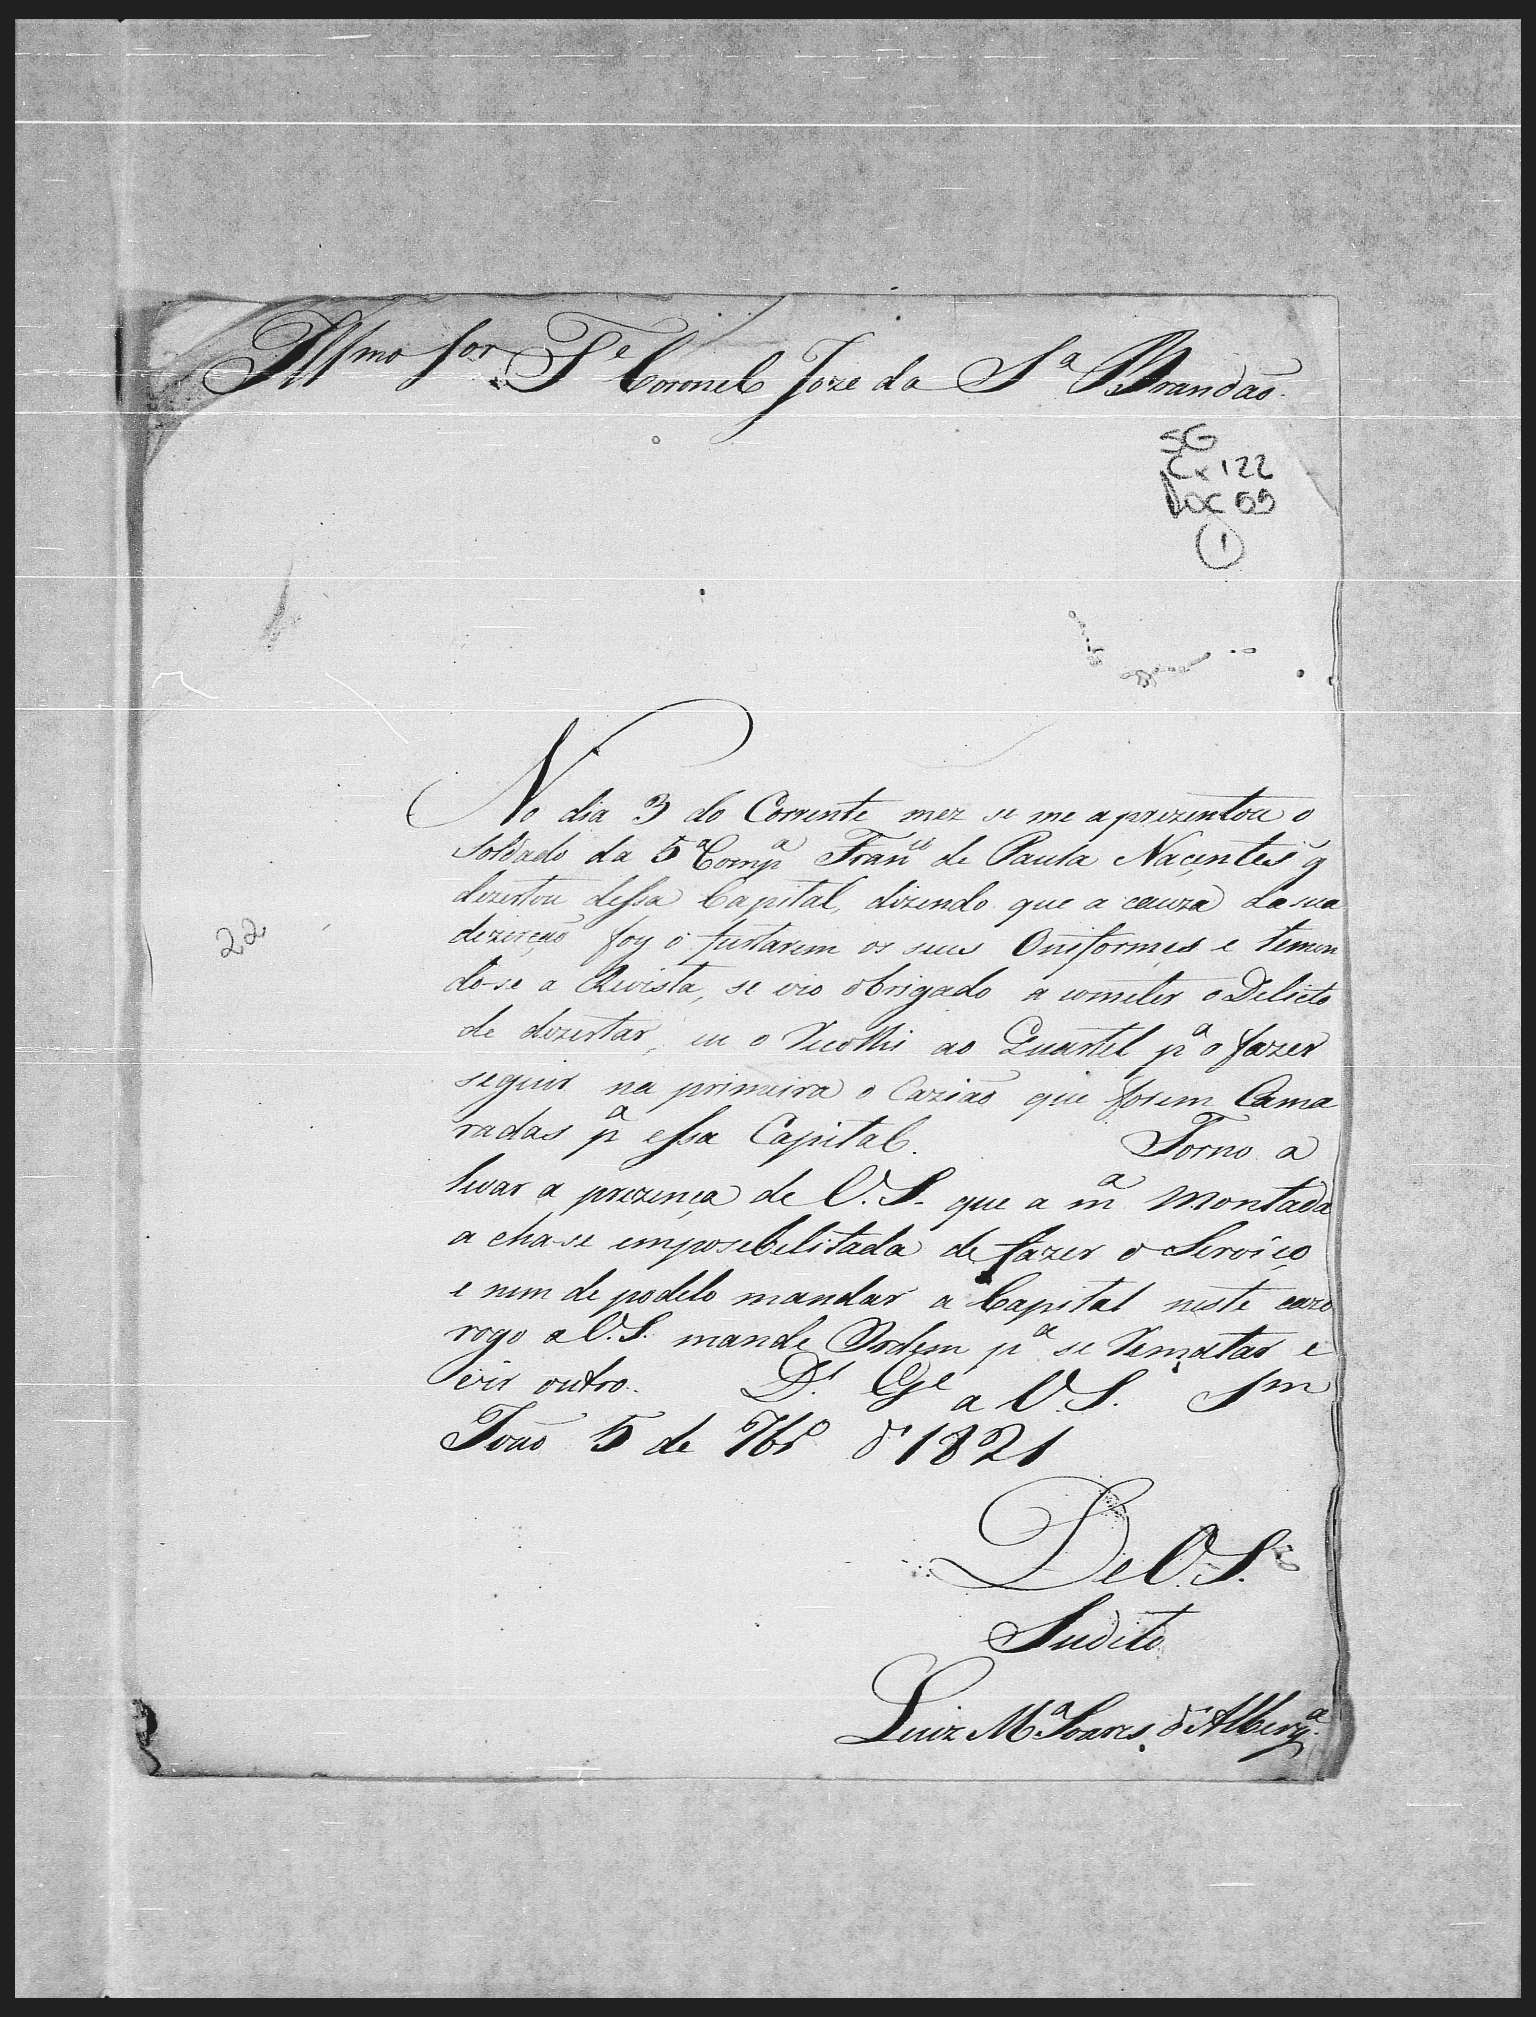 Illmo Sor Te Coronel Joze da Sa Brandão.
SG
Cx 122
DOC 55
1
No dia 3 do Corrente mez se me aprezentou o
soldado da 5a Compa Franco de Paula Naçentes q̃
dezertou dessa Capital, dizendo que a cauza da sua
dezerção foy o furtarem os seus Oniformes e temen
do-se a Revista, se vio obrigado a cometer o Delicto
de dezertar, eu o Recolhi ao Quartel pa o fazer
seguir na primeira o Cazião que forem Cama
radas pa essa Capital. Torno a
levar a prezença de V.S. que a ma Montada
a cha-se emposebelitada de fazer o Serviço
e nem de podelo mandar a Capital neste cazo
22
rogo a V.S. mande Ordem pa se Rematar e
vir outro. Ds Ge a V.S. Sm
João 5 de 7bro d'1821
De V.S.
Sudito
Luiz Ma Soares d'Alberga